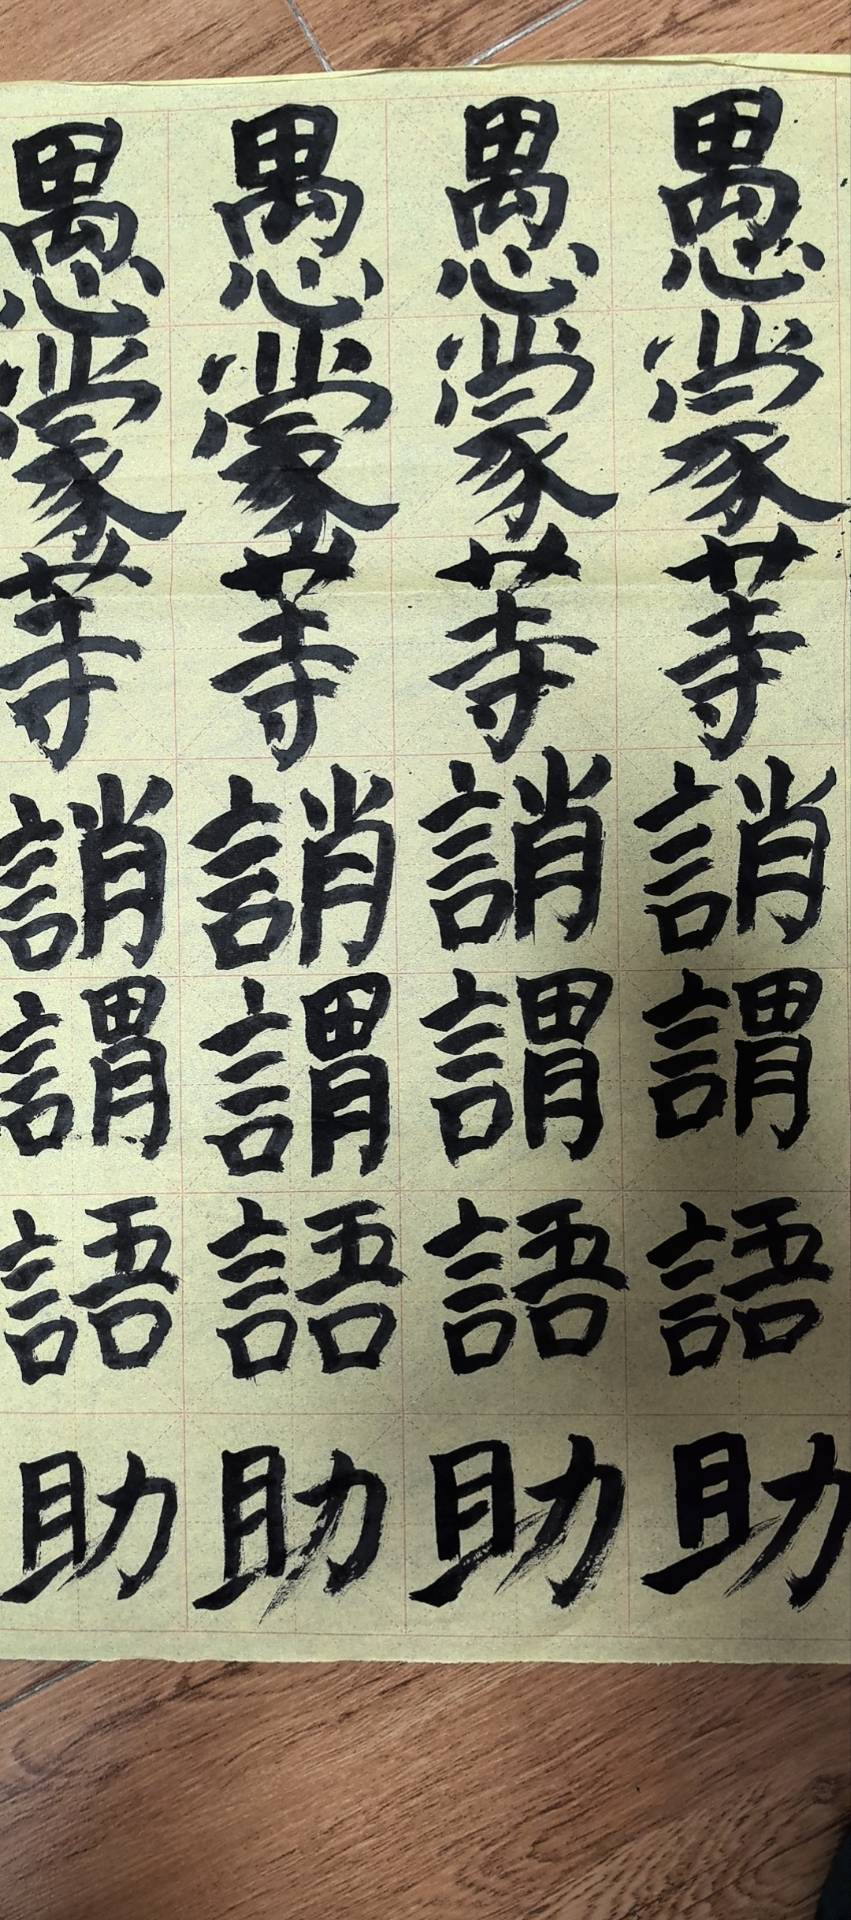 愚蒙䓁誚謂語助
愚蒙䓁誚謂語助
愚蒙䓁誚謂語助
愚蒙䓁誚謂語助